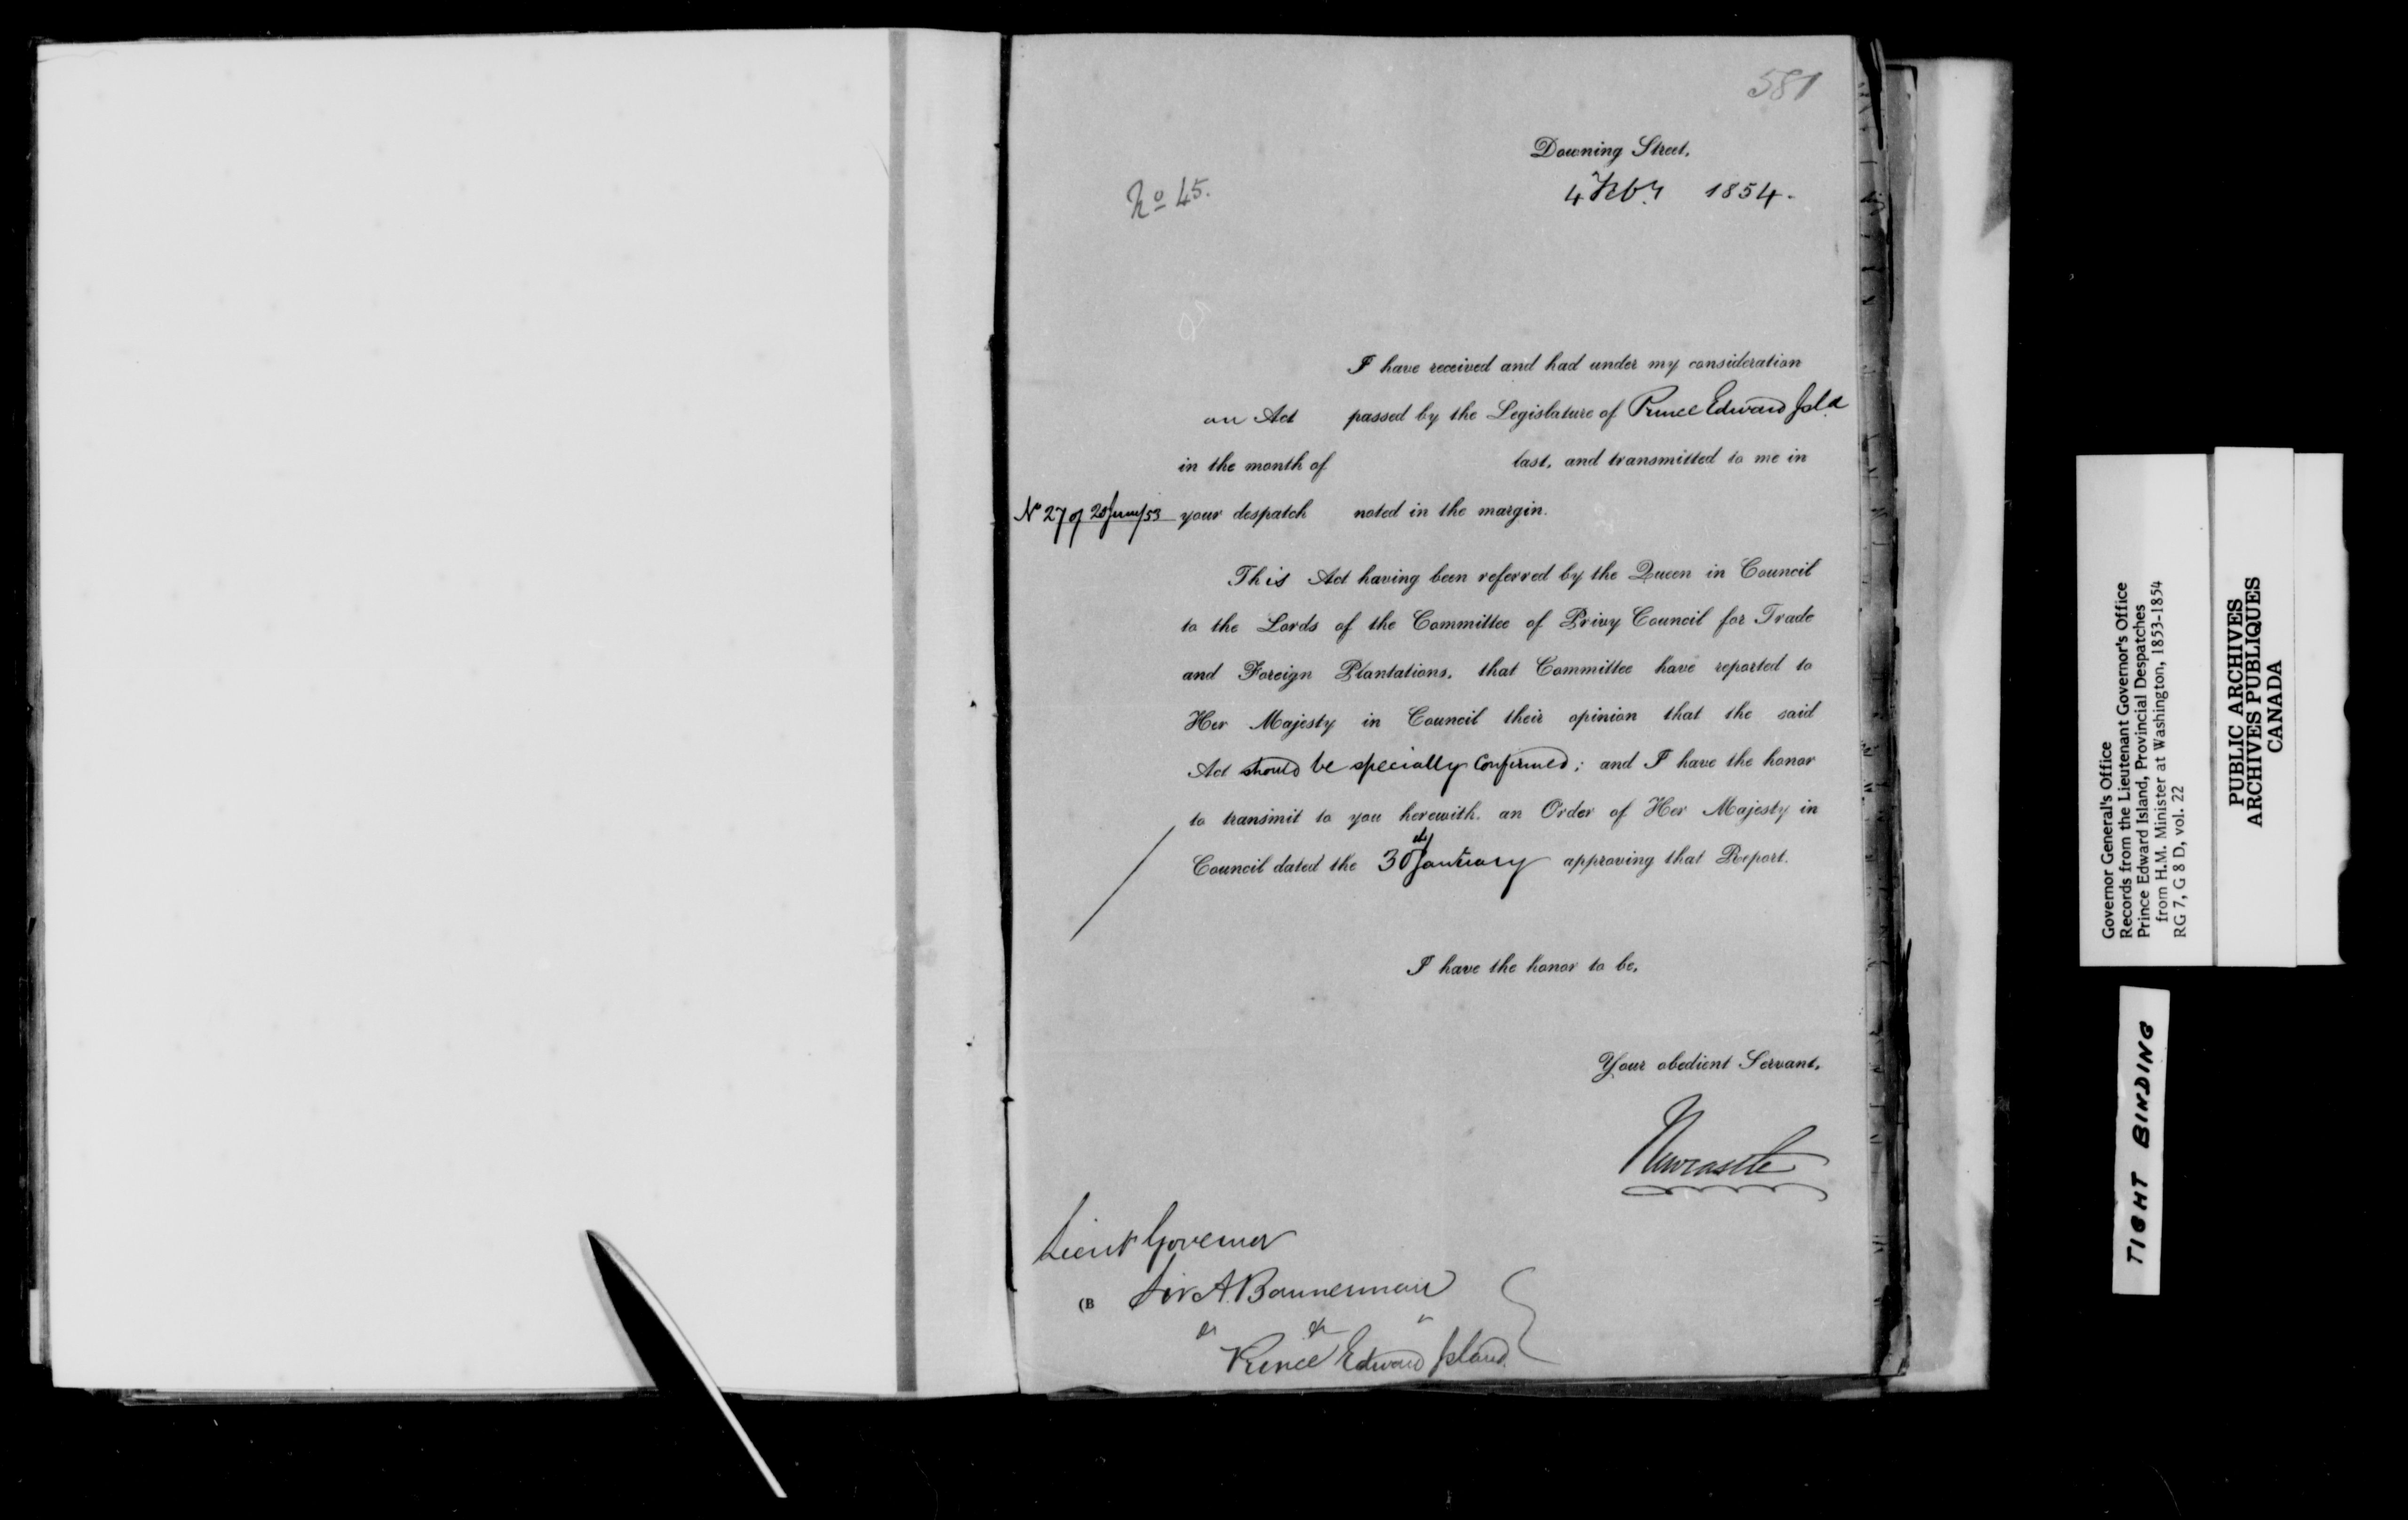 581
Downing Street,
4 Feby 1854.
No 45.
I have received and had under my consideration
an Act passed by the Legislature of Prince Edward Isld
in the month of last, and transmitted to me in
No 27 of 20 June/53 your despatch noted in the margin.
This Act having been referred by the Queen in Council
to the Lords of the Committee of Privy Council for Trade
and Foreign Plantations, that Committee have reported to
Her Majesty in Council their opinion that the said
Act should be specially confirmed; and I have the honor
to transmit to you herewith, an Order of Her Majesty in
Council dated the 30th January approving that Report.
I have the honor to be,
Your obedient Servant,
Newcastle
Lieut Governor
(B Sir A. Bannerman
& & "
Prince Edward Island.
Governor General's Office
Records from the Lieutenant Governor's Office
Prince Edward Island, Provincial Despatches
from H.M. Minister at Washington, 1853-1854
RG 7, G 8 D, vol. 22
PUBLIC ARCHIVES
ARCHIVES PUBLIQUES
CANADA
TIGHT BINDING